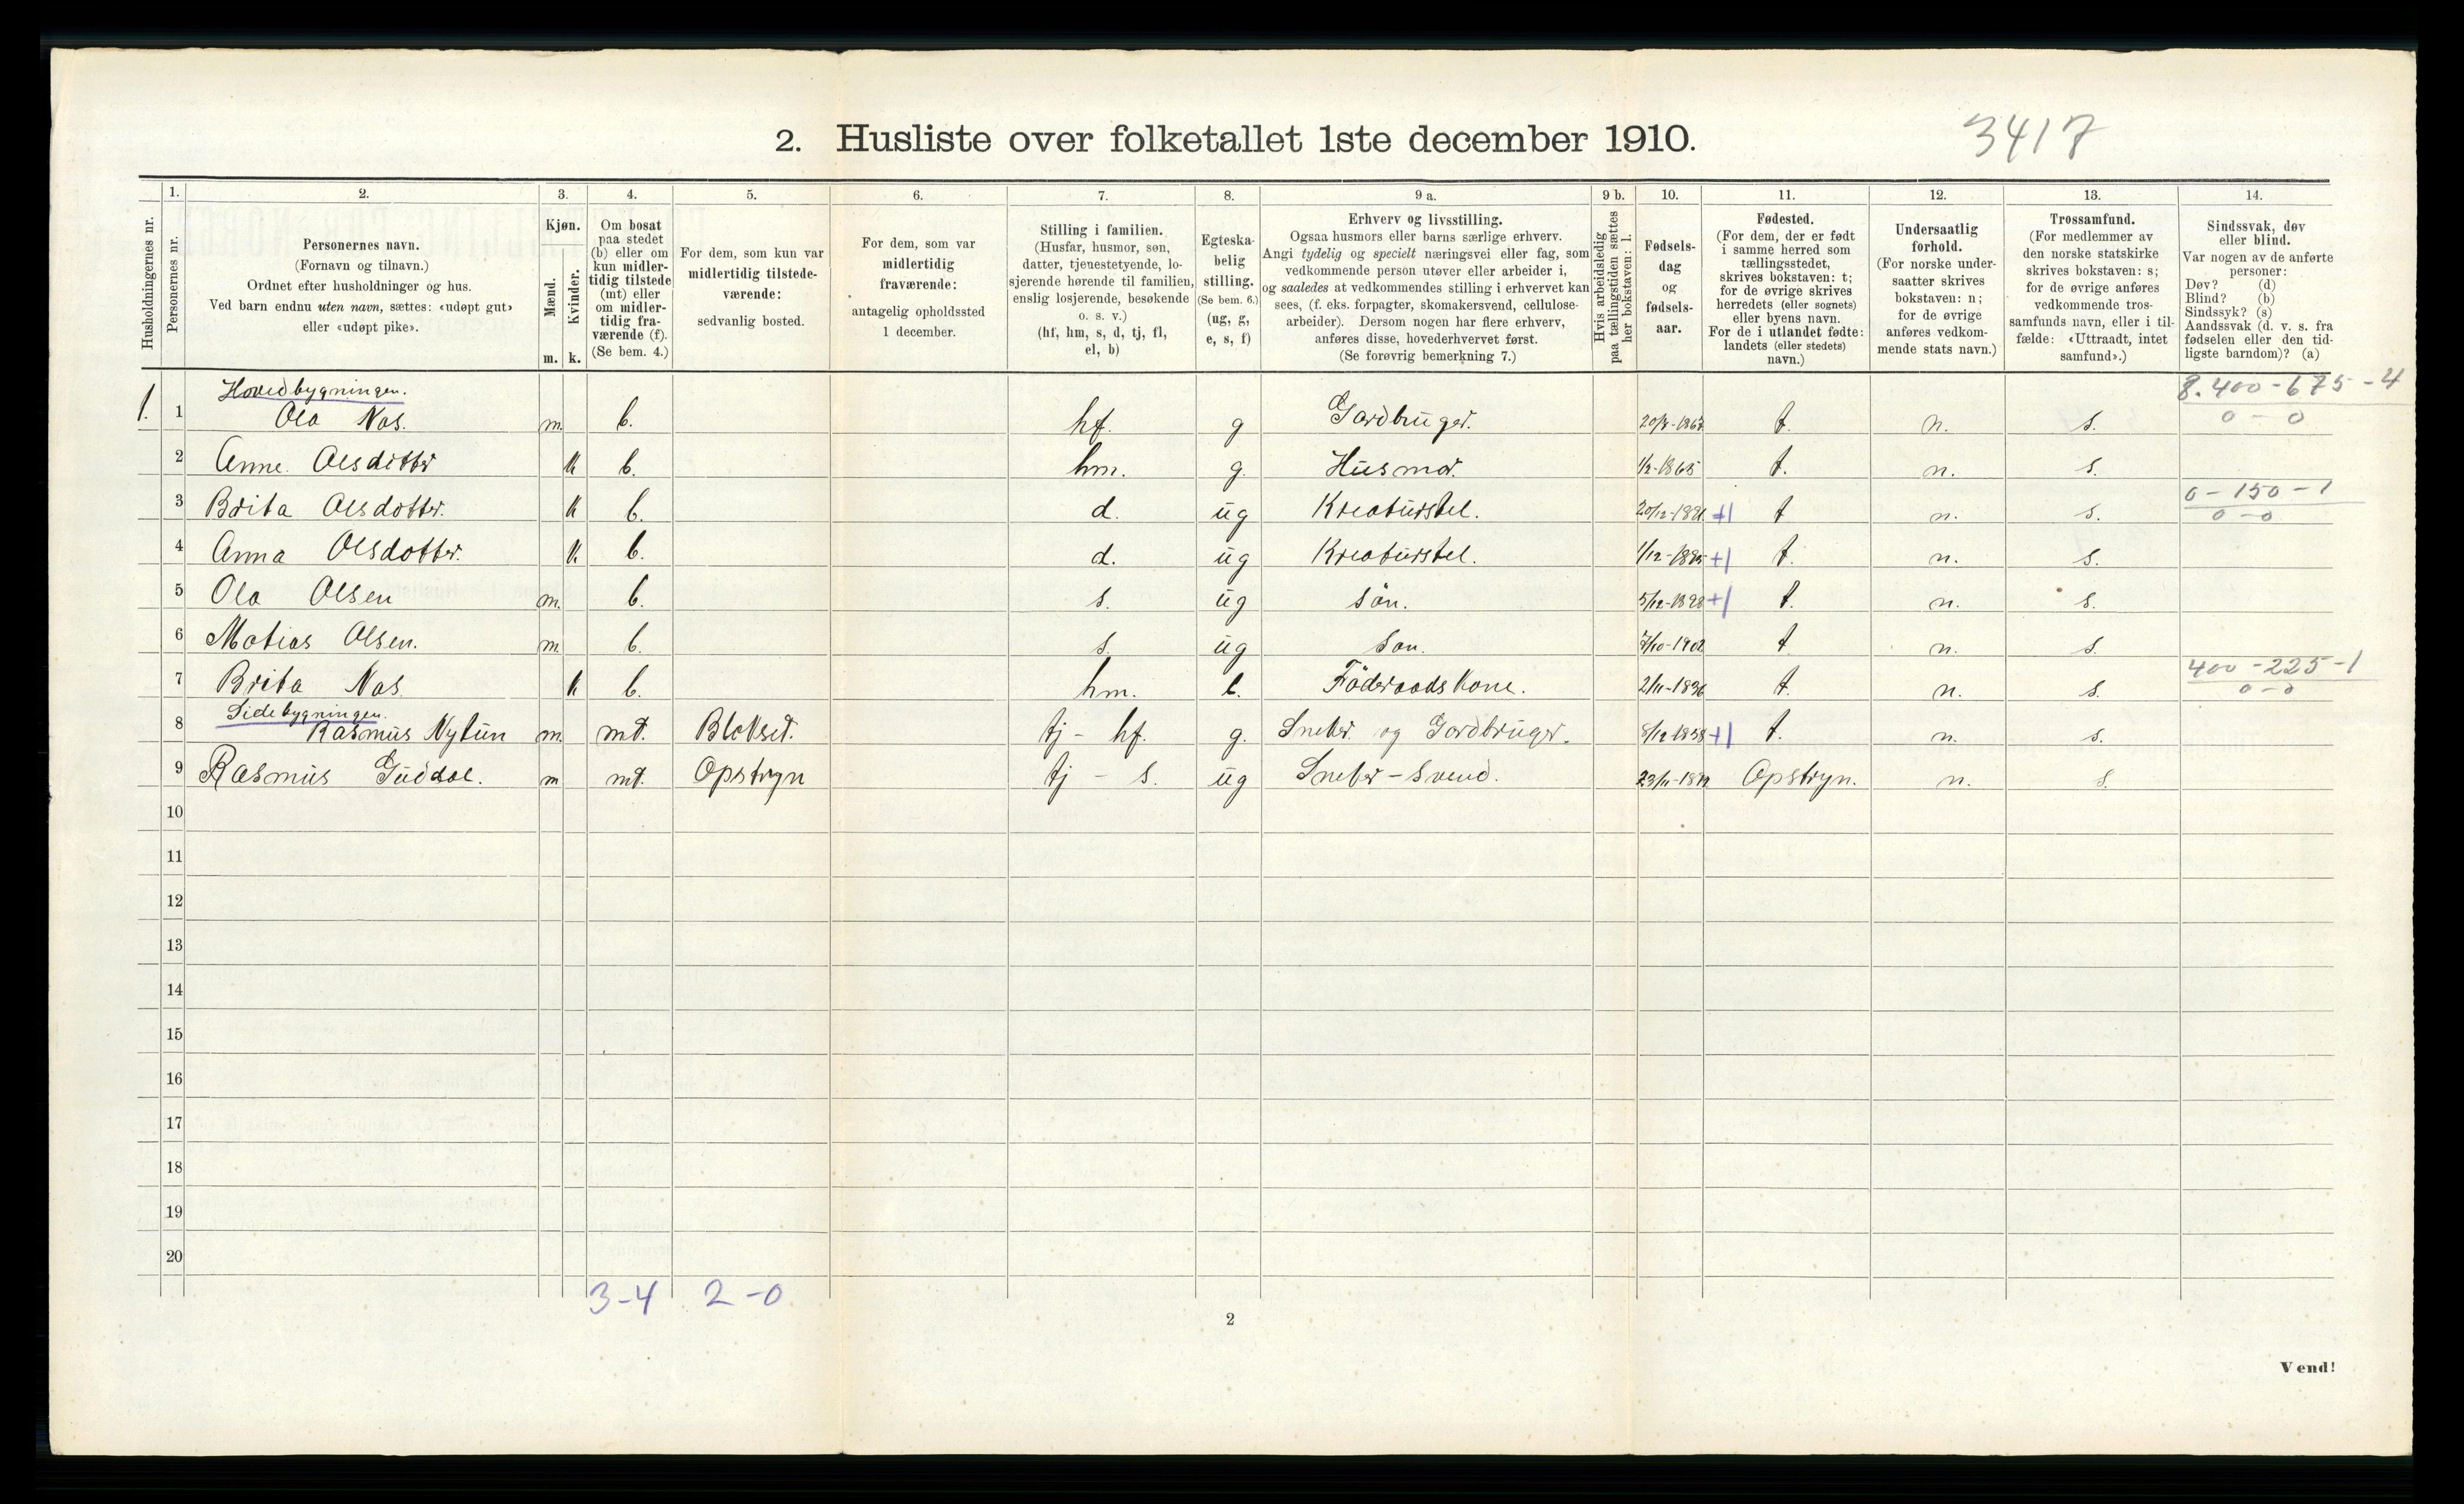 2. Husliste over folketallet 1ste december 1910.
3417
Husholdningernes nr.
1.
Personernes nr.
2.
Personernes navn.
(Fornavn og tilnavn.)
Ordnet efter husholdninger og hus.
Ved barn endnu uten navn, sættes: «udøpt gut»
eller «udøpt pike».
3.
Kjøn.
Mænd.
Kvinder.
m. k.
4.
Om bosat
paa stedet
(b) eller om
kun midler-
tidig tilstede
(mt) eller
om midler-
tidig fra-
værende (f).
(Se bem. 4.)
5.
For dem, som kun var
midlertidig tilstede-
værende:
sedvanlig bosted.
6.
For dem, som var
midlertidig
fraværende:
antagelig opholdssted
1 december.
7.
Stilling i familien.
(Husfar, husmor, søn,
datter, tjenestetyende, lo-
sjerende hørende til familien,
enslig losjerende, besøkende
o. s. v.)
(hf, hm, s, d, tj, fl,
el, b)
8.
Egteska-
belig
stilling.
(Se bem. 6.)
(ug, g,
e, s, f)
9 a.
Erhverv og livsstilling.
Ogsaa husmors eller barns særlige erhverv.
Angi tydelig og specielt næringsvei eller fag, som
vedkommende person utøver eller arbeider i,
og saaledes at vedkommendes stilling i erhvervet kan
sees, (f. eks. forpagter, skomakersvend, cellulose-
arbeider). Dersom nogen har flere erhverv,
anføres disse, hovederhvervet først.
(Se forøvrig bemerkning 7.)
9 b.
Hvis arbeidsledig
paa tællingstiden sættes
her bokstaven: l.
10.
Fødsels-
dag
og
fødsels-
aar.
11.
Fødested.
(For dem, der er født
i samme herred som
tællingsstedet,
skrives bokstaven: t;
for de øvrige skrives
herredets (eller sognets)
eller byens navn.
For de i utlandet fødte:
landets (eller stedets)
navn.)
12.
Undersaatlig
forhold.
(For norske under-
saatter skrives
bokstaven: n;
for de øvrige
anføres vedkom-
mende stats navn.)
13.
Trossamfund.
(For medlemmer av
den norske statskirke
skrives bokstaven: s;
for de øvrige anføres
vedkommende tros-
samfunds navn, eller i til-
fælde: «Uttraadt, intet
samfund».)
14.
Sindssvak, døv
eller blind.
Var nogen av de anførte
personer:
Døv? (d)
Blind? (b)
Sindssyk? (s)
Aandssvak (d. v. s. fra
fødselen eller den tid-
ligste barndom)? (a)
Hovedbygningen. 8.400-675-4
1. 1 Ola Nos. m. b. hf. g Gardbruger. t. n. s. 0-0
2 Anne Olsdotter k b. hm. g. Husmor. 1/2-1865 t. n. s.
0-150-1
3 Brita Olsdotter. k b. d. ug Kreaturstel. +1 t n. s. 0-0
4 Anna Olsdotter. k b. d. ug Kreaturstel. 1/12-1895 +1 t. n. s.
5 Ola Olsen m. b. s. ug sön. 5/12-1898 +1 t. n. s.
6 Matias Olsen. m. b. s. ug Sön. 7/10-1902 t n. s.
400-225-1
7 Brita Nos k b. hm. Föderaads Kone. 2/11-1836 t. n. s. 0-0
Sidebygningen.
8 Rasmus Nytun m. mt. Blakset. tj - hf. g. Sneker og Gardbruger. 8/12-1858 +1 t. n. s.
9 Rasmus Guddal. m mt. Opstryn tj - s. ug Sneker-Svend. Opstryn. n. s.
10
11
12
13
14
15
16
17
18
19
20
3-4 2-0
2
Vend!